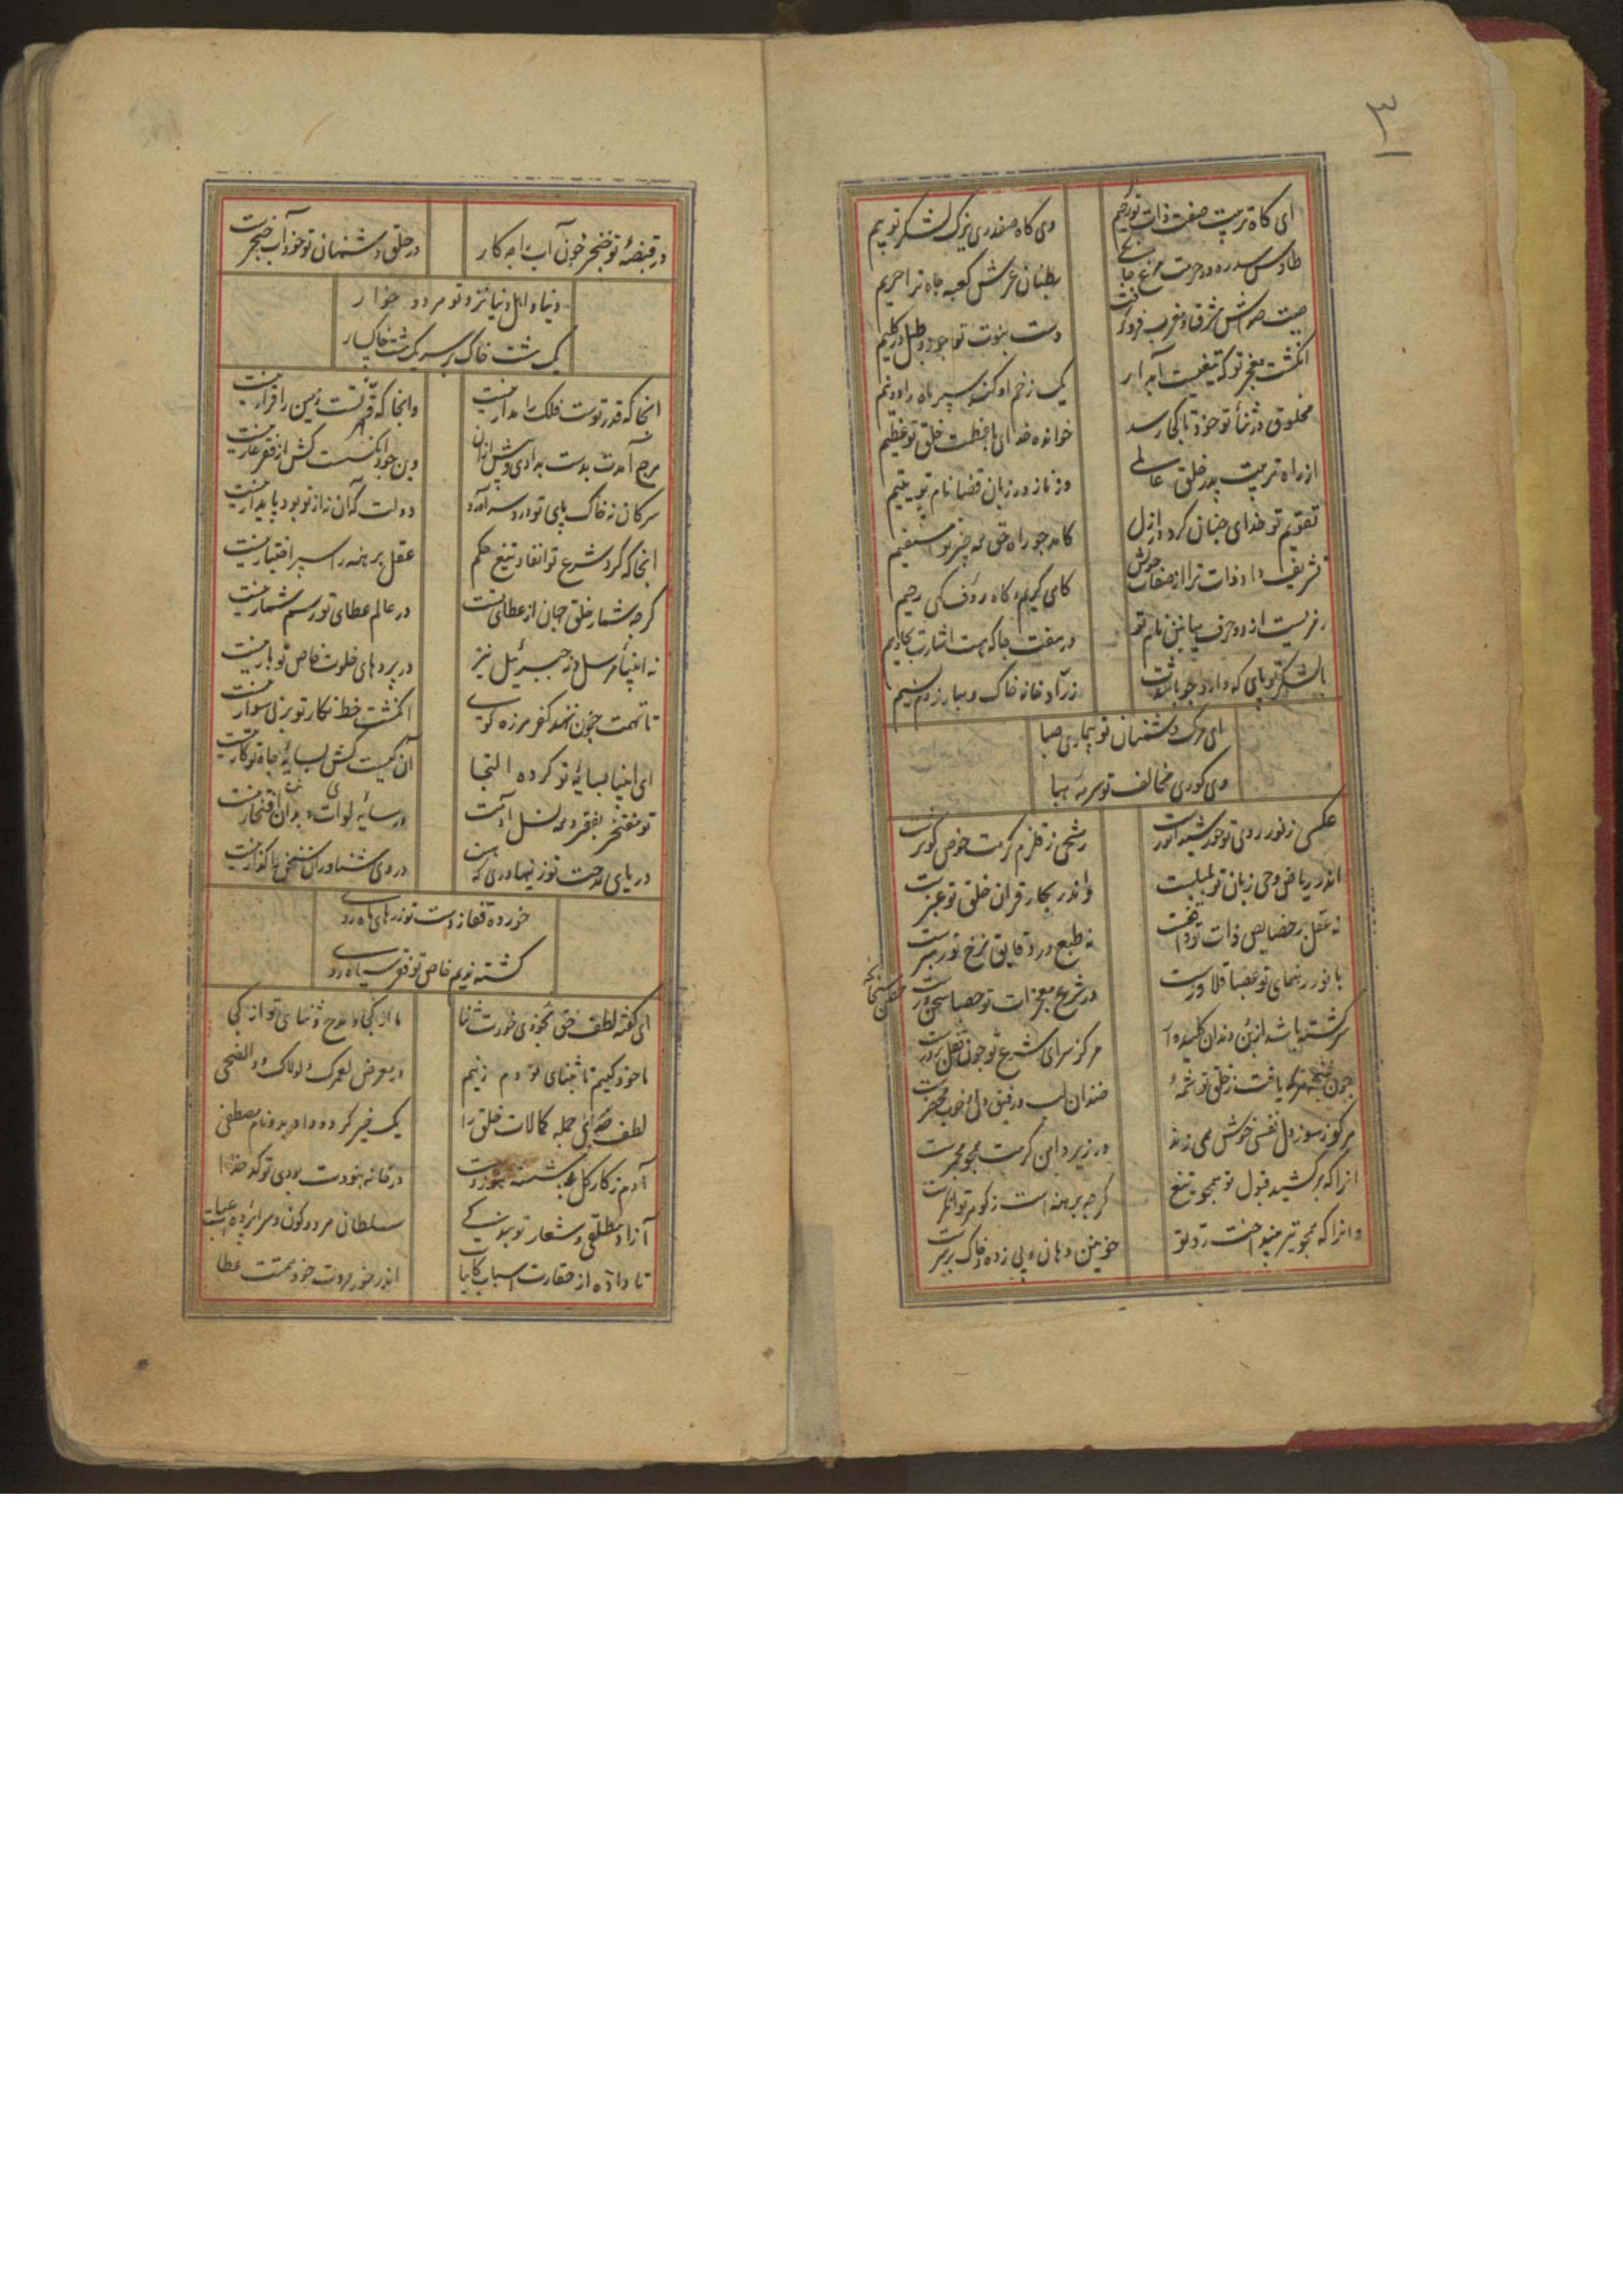 ۳
ای گاه تربیت صفت ذات تو رحیم
وی گاه صفدری یزک لشکر تو بیم
طاوس سدره در حرمت مرغ
سطنان عرش کعبه جاه ترا حریم
صیت مشرق و مغرب فرو گرفت
دست نبوت تو چو زد طبل در گلیم
انگشت معجز تو که تیغیست آبدار
یک زخم او کند سپر ماه را دو نیم
مخلوق در ثنای تو خود تا کی رسد
خوانده خدای با عظمت خلق تو عظیم
از راه تربیت پدر خلق عالمی
وز ناز در زبان قضا نام تو یتیم
تقویم تو خدای چنان کرد در ازل
کامد چو راه حق همه چیز تو مستقیم
تشریف داد ذات ترا از صفات خویش
گاهی کریم و گاه رؤف و گهی رحیم
رمزیست از دو حرف میانین نام تو
در هفت جا که هست اشارت بحا و میم
با لشکر تو پای که دارد چو باشدت
زرادخانه خاک و مبارز دم نسیم
ای مرگ دشمنان تو بیماری صبا
وی کوری مخالف تو سرمه هبا
عکسی ز نور روی تو خورشید انورست
رشحی ز قلزم کرمت حوض کوثرست
اندر ریاض وحی زبان تو بلبلست
واندر بحار قران خلق تو عنبرست
نه عقل بر خصایص ذات تو واقفست
نه طبع در دقایق نرخ تو رهبرست
با نور رهنمای تو عصا قلاوزست
در شرع معجزات تو حصبا سخن ورست
سرگشته باشد از بن دندان کلیدوار
هر کو سرای شرع تو چون قفل بر درست
چون غنچه هرکه یافت ز خلق تو شمهٔ
خندان لب و رقیق دل و خوب محضرست
هر کو ز سوز دل نفسی خوش همی زند
در زیر دامن کرمت همچو مجمرست
انرا که برکشید قبول تو همچو تیغ
گرچه برهنه است ز گوهر توانگرست
وانرا که همچو تیر بینداخت رد تو
خونین دهان و پی زده و خاک بر سرست
در قبضهٔ تو خنجر خون آب را چه کار
در حلق دشمنان تو خود آب خنجرست
دنیا و اهل دنیا نزد تو هر دو خوار
یک مشت خاک بر سر یک مشت خاکسار
انجا که قدر توست فلک را مدار نیست
وانجا که قهر تست زمین را قرار نیست
هرچ آمدت بدست بدادی و پیش از آن
وین جود انکسست کش از فقر عار نیست
سر کان نه خاک پای تو دارد سر آورد
دولت که آن نه از تو بود پایدار نیست
انجا که کرد شرع تو انفاذ تیغ حکم
عقل برهنه را سپر اختیار نیست
گرچه شمار خلق جهان از عطای تست
در عالم عطای تو رسم شمار نیست
نه انبیاء مرسل و نه جبرئیل نیز
در پردهای خلوت خاص تو بار نیست
تا تهمت جنون ننهد کفر هرزه گوی
انگشت خط نگار تو بر نی سوار نیست
ای انبیا بسایه تو کرده التجا
آن کیست کش بسایه جاه تو کار نیست
تو مفتخر بفقر و همه نسل آدمت
در سایه لوات و بدان افتخار نیست
دریای مدحت تو ز پهناوری که هست
در وی شناوران سخن را گذار نیست
خورده قفا ز دست تو زرهای ماه رو
گشته ندیم خاص تو فقر سیاه رو
ای گفته لطف حق بخودی خودت ثنا
ما از کجا و مدح و ثنای تو از کجا
ما خود کییم تا بثنای تو دم زنیم
در معرض لعمرک و لولاک و والضحی
لطف خدای جمله کمالات خلق را
یک چیز کرده و داده بدو نام مصطفی
آدم ز کار گل نشسته هنوز دست
در خانه نبوت بودی تو کدخدا
آزاد مطلقی و شعار تو بندگی
سلطان هر دو کون و سراپرده عباست
تا داده از حقارت اسباب کاینات
اندر خور مروت خود همتت عطا